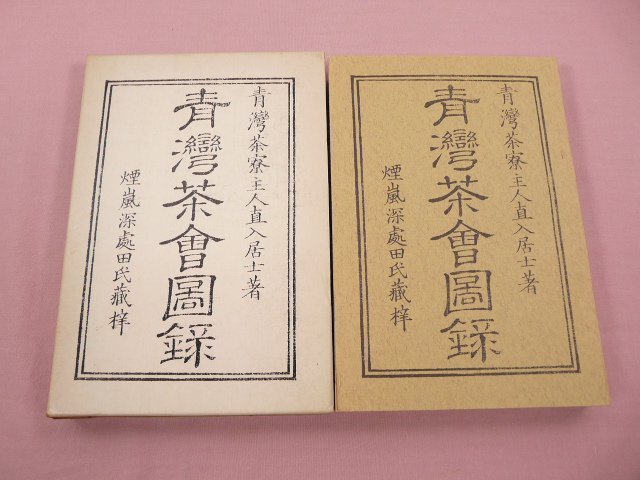 青灣茶寮主人直入居士著
青灣茶會圖録
煙嵐深處田氏藏梓
青灣茶寮主人直入居士著
青灣茶會圖録
煙嵐深處田氏藏梓